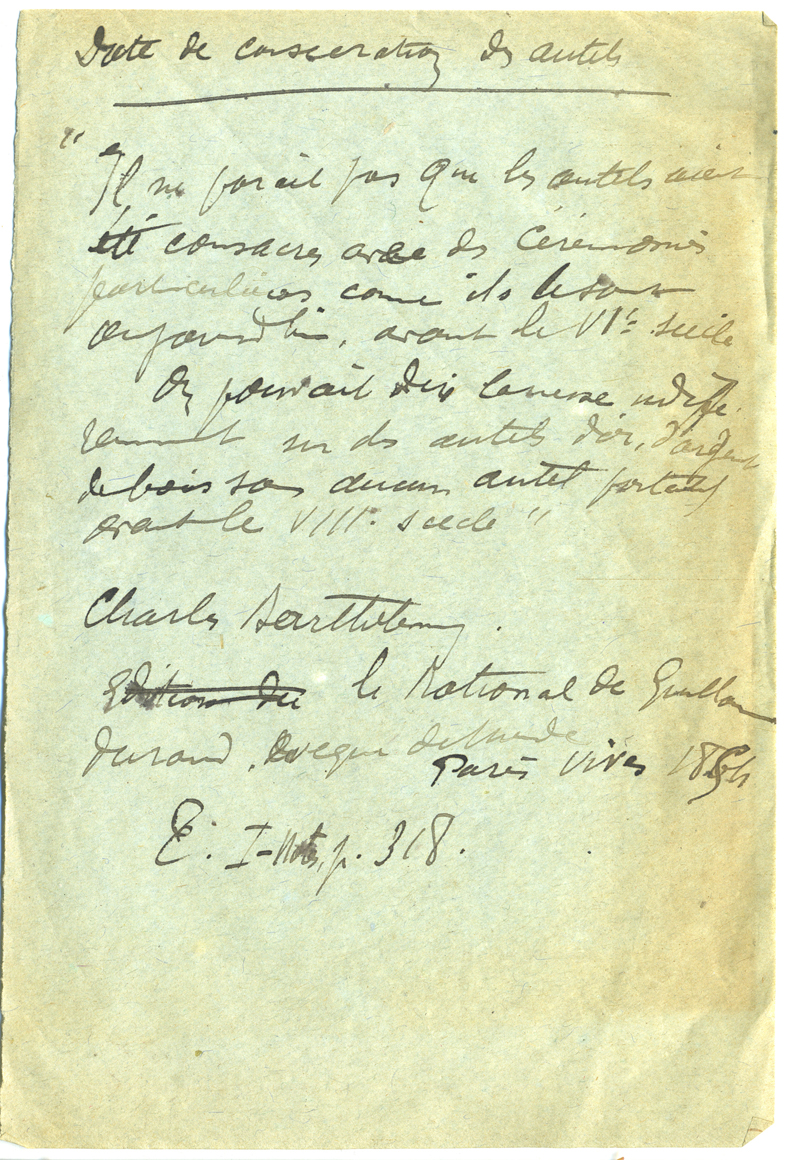 Date de consecration des autels
"
Il ne parait pas que les autels aient
été consacres avec des Cérémonies
particulieres come ils le sont
aujourd'hui, avant le VIe siecle
On pouvait dire la messe indiffe
remment sur des autels d'or, d'argent
de bois sans aucun autel portatif
avant le VIIIe siecle "
Charles Barthelemy.
Edition du le Rational de Guillaume
Durand, Eveque de Mende
Paris Vivès 1854
T. I - Notes, p. 318.